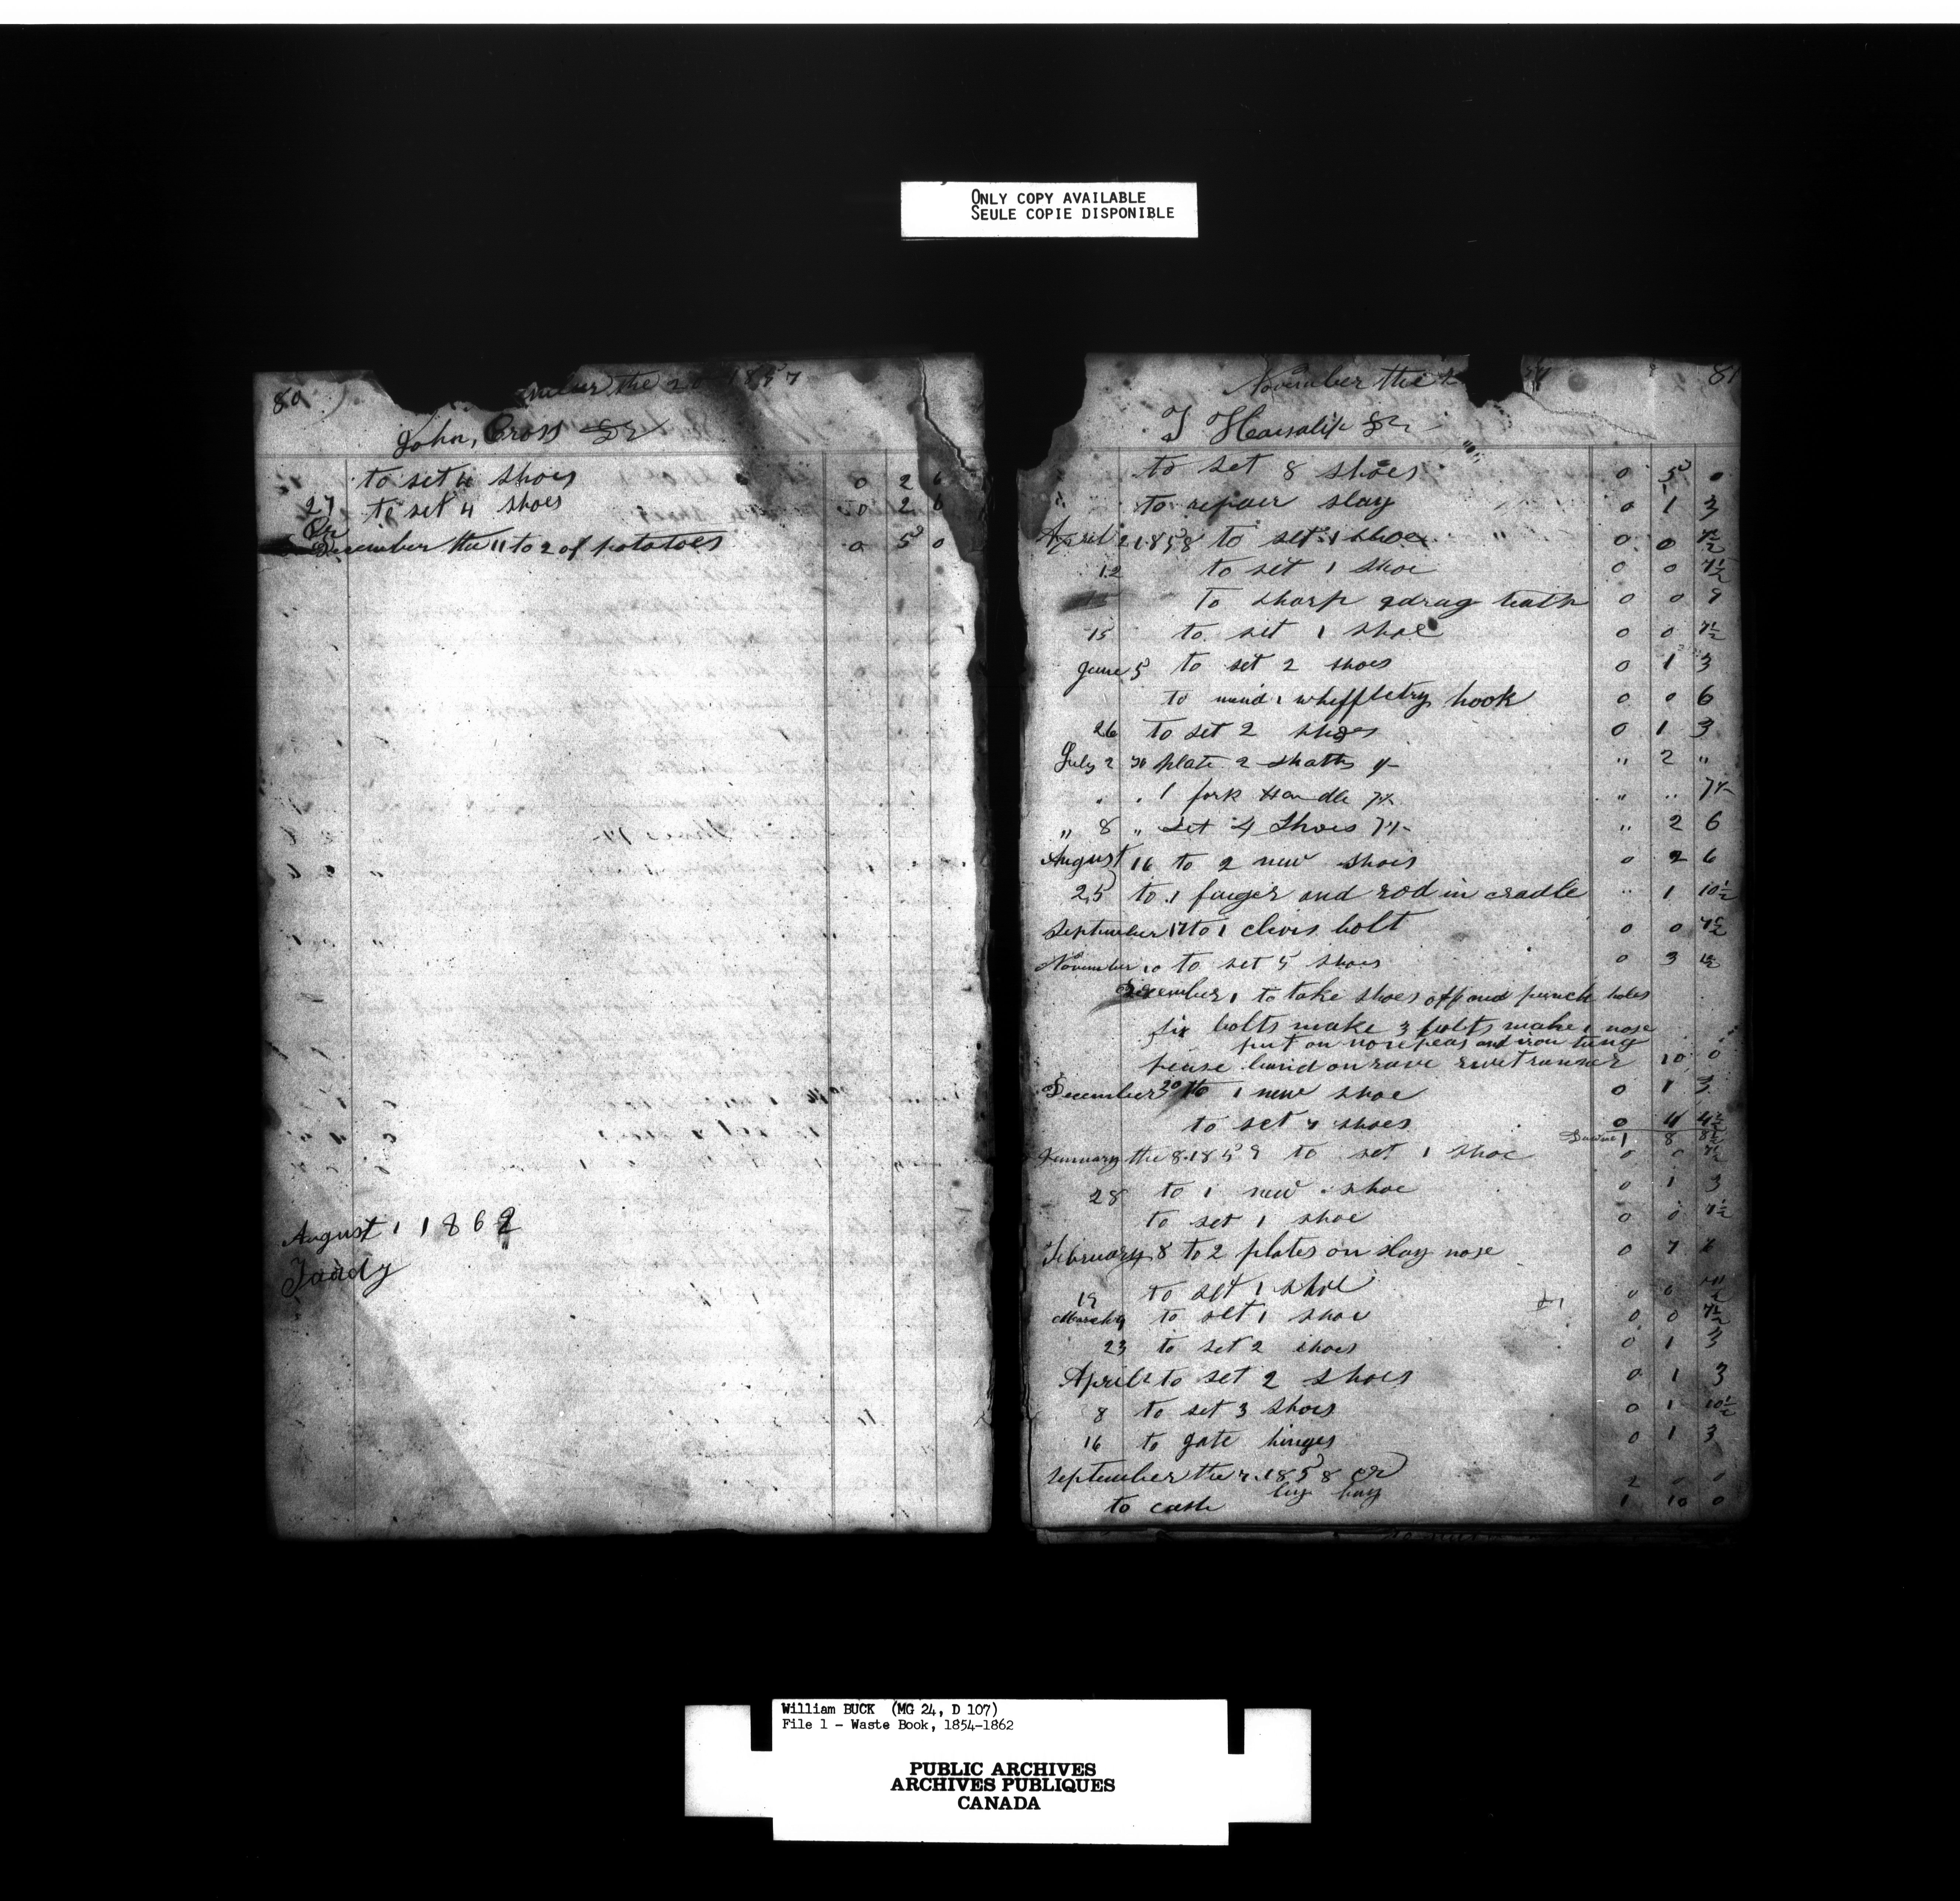 ONLY COPY AVAILABLE
SEULE COPIE DISPONIBLE
80
the 20 1857
John, Cross Dr
to set 4 shoes 0 2 6
27 to set 4 shoes 0 2 6
Cr
December the 11 to 2 of potatoes 0 5 0
August 1 1862
November the
81
Dr
to set 8 shoes 0 5 0
" to repair slay 0 1 3
April 2 1858 to set 1 shoe 0 0 7½
12 to set 1 shoe 0 0 7½
to sharp 9 drag teath 0 0 9
15 to set 1 shoe 0 0 7½
June 5 to set 2 shoes 0 1 3
to mend 1 whiffletry hook 0 0 6
26 to set 2 shoes 0 1 3
July 2 to plate 2 " 2 "
" " 1 fork Handle " "
" 8 " set 4 Shoes " 2 6
August 16 to 2 new shoes 0 2 6
25 to 1 finger and rod in cradle " 1 10½
September 17 to 1 clivis bolt 0 0 7½
November 10 to set 5 shoes 0 3 1½
December 1 to take shoes off and punch holes
six bolts make 3 bolts make 1 nose
put on nose and iron tung
band on rave runner 10 0
December 20 to 1 new shoe 0 1 3
to set 7 shoes 0 4 4½
1 8 8½
January the 8 1859 to set 1 shoe 0 0 7½
28 to 1 new shoe 0 1 3
to set 1 shoe 0 0 7½
February 8 to 2 plates on slay nose 0 7
19 to set 1 shoe 0 0 7½
March 9 to set 1 shoe 0 0 7½
23 to set 2 shoes 0 1 3
April 2 to set 2 shoes 0 1 3
8 to set 3 shoes 0 1 10½
16 to gate hinges 0 1 3
September the 1858 cr
by hay 2 0 0
to cash 1 10 0
William BUCK (MG 24, D 107)
File 1 - Waste Book, 1854-1862
PUBLIC ARCHIVES
ARCHIVES PUBLIQUES
CANADA